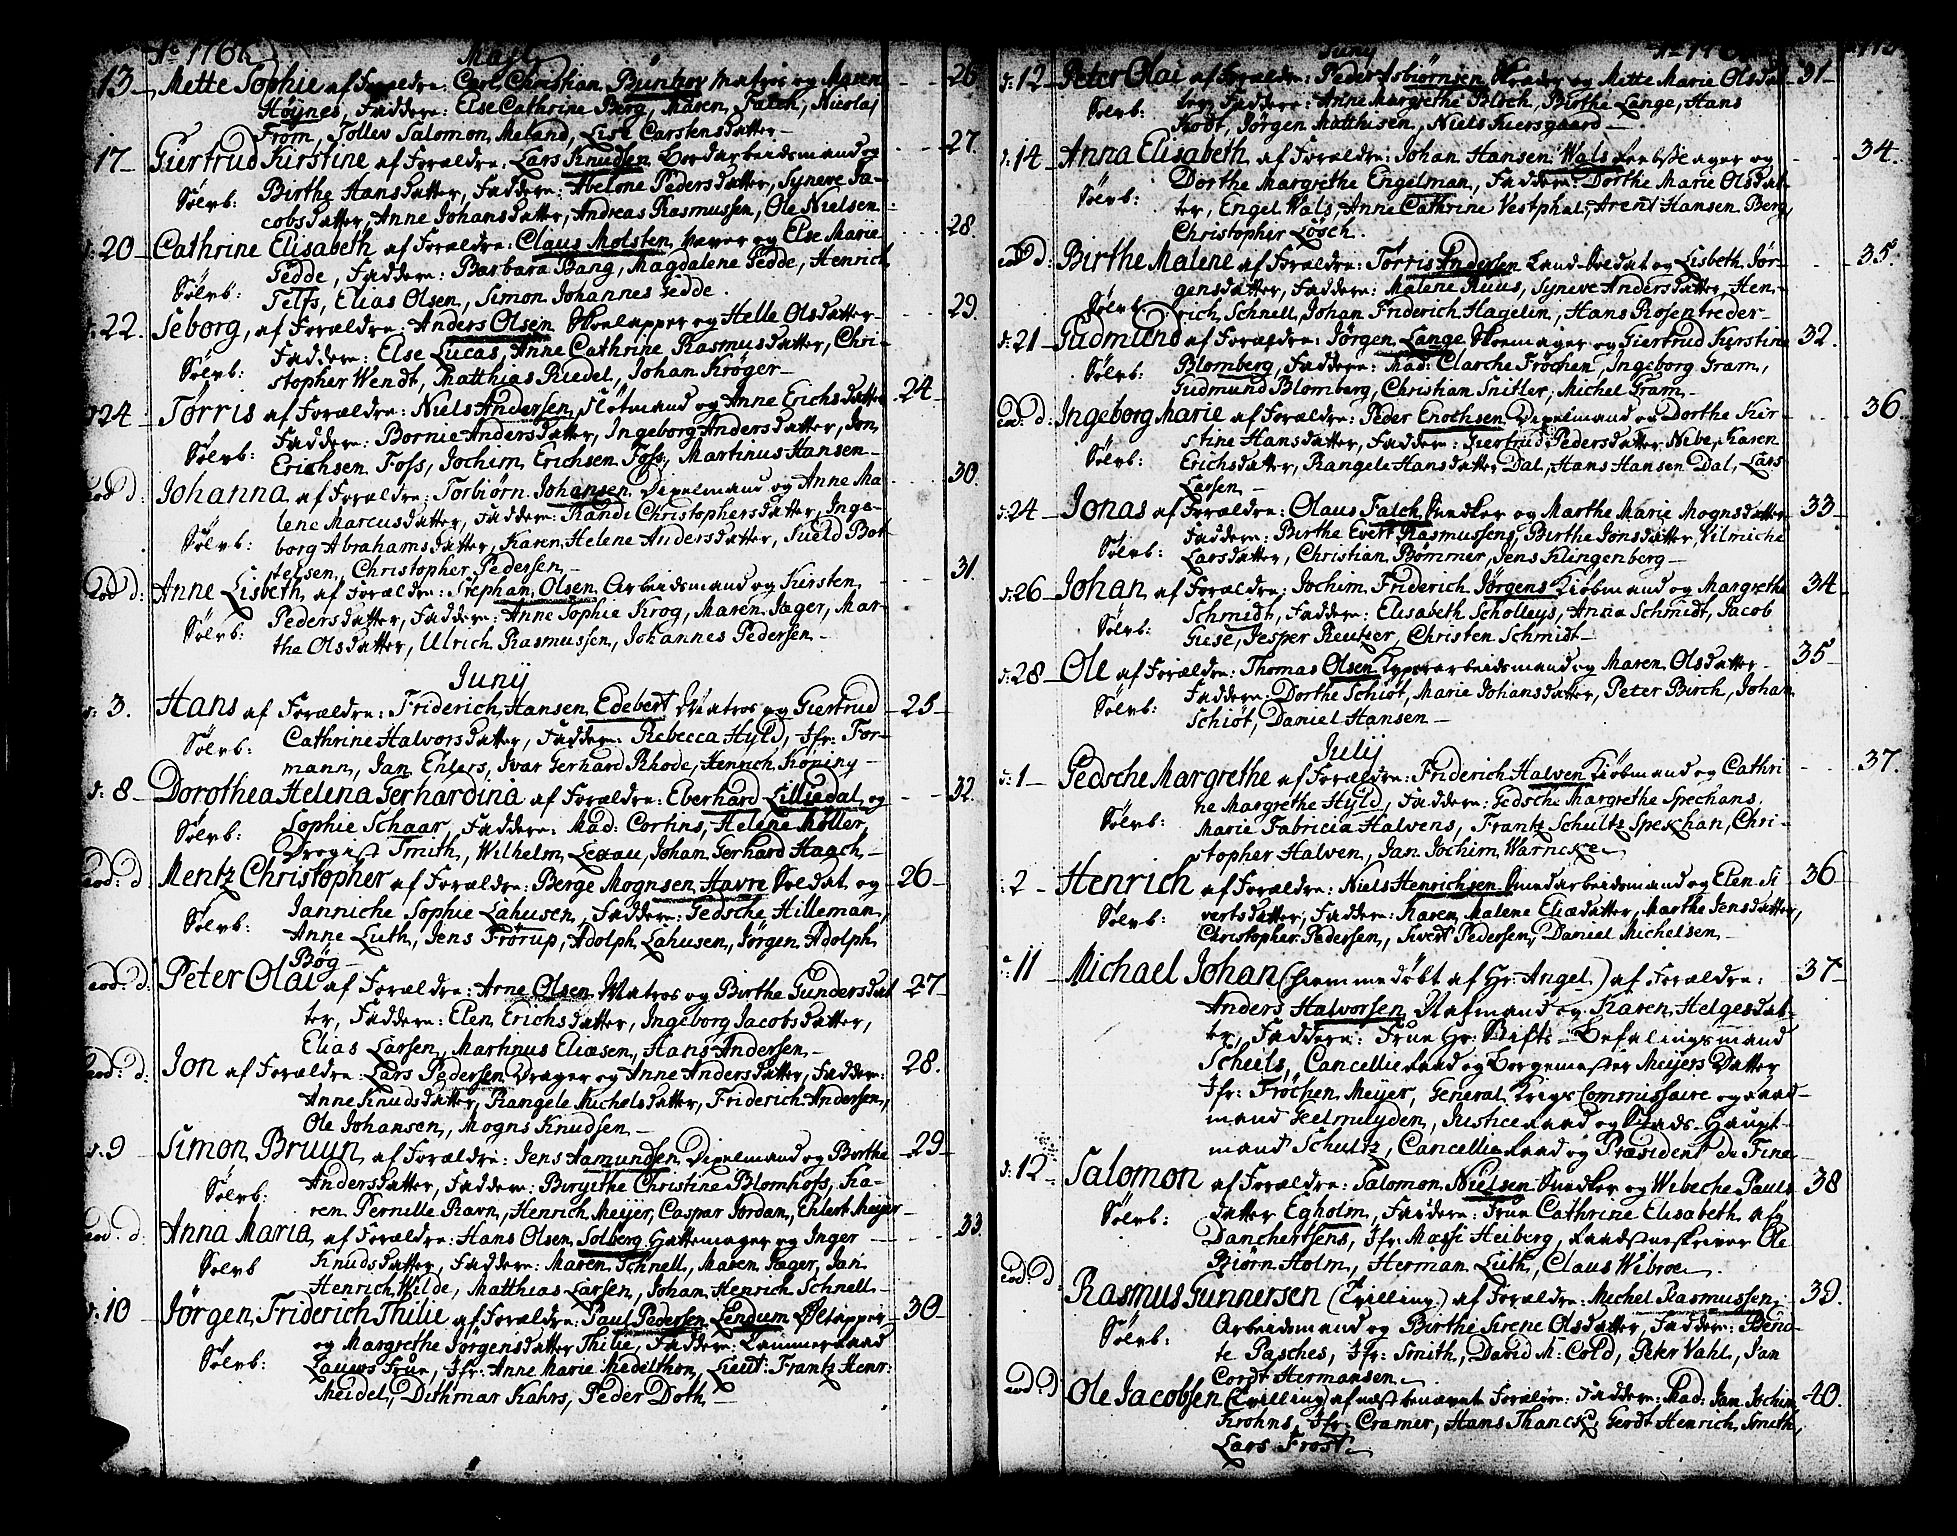 Ao 1762 Maji
13 Mette Sophie af Forældre: Carl Christian Bünhov Matros og Maren 26
Høynes, Faddere: Else Cathrine Berg, Maren Falch, Nicolaj
From, Tollev Salomon Meland, Lise Carstensdatter
17 Giertrud Kirstine af Forældre: Lars Knudsen Bordarbeidsmand og 27.
Sølvb: Birthe Hansdatter, Faddere: Abelone Pedersdatter, Syneve Ja-
cobsdatter, Anne Johansdatter, Andreas Rasmussen, Ole Nielsen
d: 20 Cathrine Elisabeth af Forældre: Claus Molsten, Væver og Else Marie 28
Sølvb: Gedde, Faddere: Barbara Bang, Magdalene Gedde, Henrich
Telfs, Elias Olsen, Simon Johannes Gedde.
d: 22. Seborg, af Forældre: Anders Olsen Skoelapper og Helle Olsdatter 29.
Sølvb: Faddere: Else Lucas, Anne Cathrine Rasmusdatter, Chri-
stopher Wendt, Matthias Riedel, Johan Krøger
d 24 Torris af Forældre: Niels Andersen, Slotmand og Anne Erichsdatter 24
Sølvb: Faddere: Bornie Andersdatter, Ingeborg Andersdatter, Jon
Erichsen Foss, Jochim Erichsen Foss, Martinus Hansen
eod d: Johanna af Forældre: Torbiørn Johansen Dipelmand og Anne Ma 30.
lene Marcusdatter, Faddere: Rande Christophersdatter, Inge-
Sølvb: borg Abrahamsdatter, Karen Helene Andersdatter, Sueld Bot-
telsen, Christopher Pedersen
eod d: Anne Lisbeth af Forældre: Stephan Olsen Arbeidsmand og Kirsten 31.
Sølvb: Pedersdatter, Faddere: Anne Sophie Krog, Maren Jæger, Mar-
the Olsdatter, Ulrich Rasmussen, Johannes Pedersen
Juny
d: 3. Hans af Forældre: Friderich Hansen Edebert Matros og Giertrud 25
Sølvb: Cathrine Halvorsdatter, Faddere: Rebecca Hyld, Jfr: For-
mann, Jan Ehlers, Ivar Gerhard Rhode, Henrich Köning
d: 8 Dorothea Helena Gerhardina af Forældre: Eberhard Lilliedal og 32.
Sølvb: Sophie Schaar, Faddere: Mad: Cortins, Helene Møller,
Dragist Smith, Wilhelm Lexau, Johan Gerhard Haach
eod: d Mentz Christopher af Forældre: Berge Mognsen Havre Soldat og 26
Sølvb: Janniche Sophie Lahusen, Faddere: Gedsche Hilleman,
Anne Luth, Jens Frørup, Adolph Lahusen, Jørgen Adolph
Bøg
eod: d: Peter Olai af Forældre: Arne Olsen Matros og Birthe Gundersdat 27
ter, Faddere: Elen Erichsdatter, Ingeborg Jacobsdatter,
Elias Larsen, Martinus Eliæsen, Hans Andersen
eod: d: Jon af Forældre: Lars Pedersen Drager og Anne Andersdatter, Faddere: 28.
Anne Knudsdatter, Rangele Michelsdatter, Friderich Andersen,
Ole Johansen, Mogns Knudsen
d: 9 Simon Bruun af Forældre: Jens Aamundsen Dipelmand og Birthe 29
Sølvb: Andersdatter, Faddere: Birgithe Christine Blomhofs, Ka-
ren Pernille Ravn, Henrich Meyer, Caspar Jordan, Ehlert Meyer
eod. d. Anna Maria af Forældre: Hans Olsen Solberg Hattemager og Inger 33
Sølvb Knudsdatter, Faddere: Maren Schnell, Maren Jæger, Jan
Henrich Wilde, Matthias Larsen, Johan Henrich Schnell
d: 10 Jørgen Friderich Thilie af Forældre: Paul Pedersen Lendum Øltapper 30
og Margrethe Jørgensdatter Thilie, Faddere: Kammerraad
Sølvb: Lauws Frue, Jfr: Anne Marie Medelthon, Lieut: Frantz Henr:
Meidel, Dithmar Kahrs, Peder Doth
Juny
d: 12 Peter Olai af Forældre: Peder Asbiørnsen Skrader og Mette Marie Olsdat 31
Sølvb: ter, Faddere: Anne Margrethe Bloch, Birthe Lange, Hans
Kodt, Jørgen Matthisen, Niels Kiersgaard
d. 14 Anna Elisabeth af Forældre: Johan Hansen Wals og 34.
Sølvb: Dorthe Margrethe Engelman, Faddere: Dorthe Marie Olsdat-
ter, Engel Wals, Anne Cathrine Vestphal, Arent Hansen Berg
Christopher Loosch.
eod d: Birthe Malene af Forældre: Torris Andersen Land-Soldat og Lisbeth Jør- 35.
gensdatter, Faddere: Malene Ruus, Syneve Andersdatter, Hen-
Sølvb rich Schnell, Johan Friderich Hagelin, Hans Rosentreder
d: 21 Gudmund af Forældre: Jørgen Lange Skoemager og Giertrud Kirstine 32.
Sølvb: Blomberg, Faddere: Mad: Clarche Frøchen, Ingeborg Gram,
Gudmund Blomberg, Christian Snitler, Michel Gram
eod. d: Ingeborg Marie af Forældre: Peder Enothsen Dipelmand og Dorthe Kir- 36.
stine Hansdatter, Faddere: Giertrud Pedersdatter Nibe, Karen
Sølvb: Erichsdatter, Rangele Hansdatter Dal, Hans Hansen Dal, Lars
Larsen
d: 24 Jonas af Forældre: Olaus Falch Snedker og Marthe Marie Mognsdatter 33
Sølvb: Faddere: Birthe Evert Rasmussens, Birthe Jonsdatter, Vilmiche
Larsdatter, Christian Bømmer, Jens Klingenberg
d: 26 Johan af Forældre: Jochim Friderich Jørgens Kiøbmand og Margrethe 34
Sølvb: Schmidt, Faddere: Elisabeth Scholleys, Anna Schmidt, Jacob
Giese, Jesper Reutzer, Christen Schmidt
d: 28 Ole af Forældre: Thomas Olsen Typperarbeidsmand og Maren Olsdatter 35
Sølvb: Faddere: Dorthe Schiøt, Marie Johansdatter, Peter Birch, Johan
Schiøt, Daniel Hansen
July
d: 1 Gedsche Margrethe af Forældre: Friderich Halven Kiøbmand og Cathri 37.
ne Margrethe Hyld, Faddere: Gedsche Margrethe Spechans
Sølvb: Marie Fabricia Halvens, Frantz Schultz Spekhan, Chri-
stopher Halven, Jan Jochim Warncke
: 2 Henrich af Forældre: Niels Henrichsen Smedarbeidsmand og Elen Si 36
Sølvb: vertsdatter, Faddere: Karen Malene Eliædatter, Marthe Jensdatter,
Christopher Pedersen, Sivert Pedersen, Daniel Michelsen
11 Michael Johan (hiemmedøbt af Hr: Angel) af Forældre: 37
Anders Halvorsen Stafmand og Karen Helgesdat-
ter, Faddere: Frue Hr: Stifts-Befalingsmand
Scheels, Cancellieraad og Borgemester Meyers Datter
Jfr: Frøchen Meyer, General Krigs Commissaire og raad-
mand Geelmuyden, Justiceraad og Stads-Haupt-
mand Schultz, Cancellieraad og Præsident de Fine
d: 12 Salomon af Forældre: Salomon Nielsen Snedker og Wibeche Pauls 38
Sølvb: datter Egholm, Faddere: Frue Cathrine Elisabeth af
Danchertsens, Jfr: Massi Heiberg, Raadstueskriver Ole
Biørn Holm, Herman Luth, Claus Wibroe
eod: d Rasmus Gunnersen (Tvilling) af Forældre: Michel Rasmussen 39.
Sølvb: Arbeidsmand og Birthe Sirene Olsdatter, Faddere: Bend-
te Pasches, Jfr: Smith, David M: Cold, Peter Vahl, Jan
Cordt Hermansen
eod. d Ole Jacobsen (Tvilling) af næstbenævnt Forælre: Faddere: Mad: Jan Jochim 40.
Krohns, Jfr: Cramer, Hans Thanck, Gerdt Henrich Smith,
Lars Frost